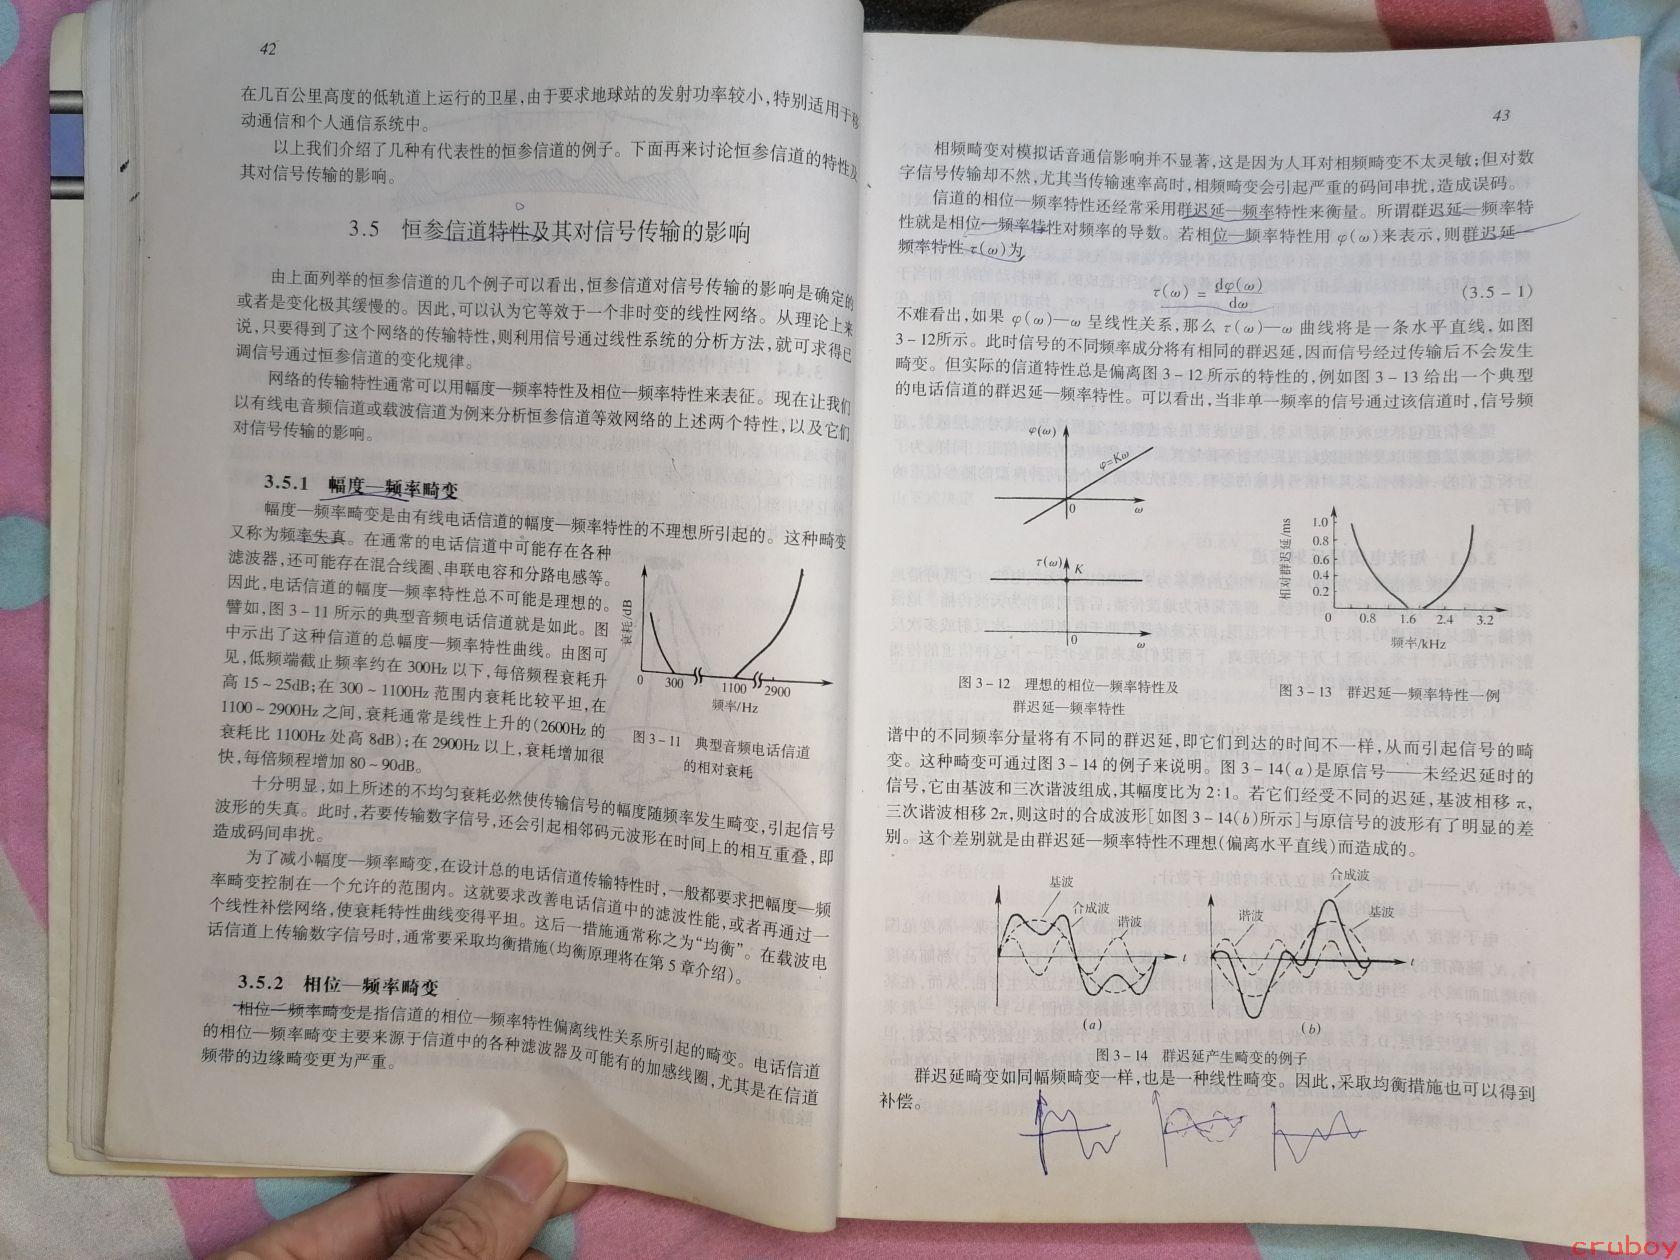 42
在几百公里高度的低轨道上运行的卫星,由于要求地球站的发射功率较小,特别适用于移
动通信和个人通信系统中。
以上我们介绍了几种有代表性的恒参信道的例子。下面再来讨论恒参信道的特性及
其对信号传输的影响。
3.5 恒参信道特性及其对信号传输的影响
由上面列举的恒参信道的几个例子可以看出,恒参信道对信号传输的影响是确定的
或者是变化极其缓慢的。因此,可以认为它等效于一个非时变的线性网络。从理论上来
说,只要得到了这个网络的传输特性,则利用信号通过线性系统的分析方法,就可求得已
调信号通过恒参信道的变化规律。
网络的传输特性通常可以用幅度—频率特性及相位—频率特性来表征。现在让我们
以有线电音频信道或载波信道为例来分析恒参信道等效网络的上述两个特性,以及它们
对信号传输的影响。
3.5.1 幅度—频率畸变
幅度—频率畸变是由有线电话信道的幅度—频率特性的不理想所引起的。这种畸变
又称为频率失真。在通常的电话信道中可能存在各种
滤波器,还可能存在混合线圈、串联电容和分路电感等。
因此,电话信道的幅度—频率特性总不可能是理想的。
譬如,图 3-11 所示的典型音频电话信道就是如此。图
中示出了这种信道的总幅度—频率特性曲线。由图可
见,低频端截止频率约在 300Hz 以下,每倍频程衰耗升
高 15~25dB;在 300~1100Hz 范围内衰耗比较平坦,在
1100~2900Hz 之间,衰耗通常是线性上升的(2600Hz 的
衰耗比 1100Hz 处高 8dB);在 2900Hz 以上,衰耗增加很
快,每倍频程增加 80~90dB。
衰耗/dB
0 300 1100 2900
频率/Hz
图 3-11 典型音频电话信道
的相对衰耗
十分明显,如上所述的不均匀衰耗必然使传输信号的幅度随频率发生畸变,引起信号
波形的失真。此时,若要传输数字信号,还会引起相邻码元波形在时间上的相互重叠,即
造成码间串扰。
为了减小幅度—频率畸变,在设计总的电话信道传输特性时,一般都要求把幅度—频
率畸变控制在一个允许的范围内。这就要求改善电话信道中的滤波性能,或者再通过一
个线性补偿网络,使衰耗特性曲线变得平坦。这后一措施通常称之为“均衡”。在载波电
话信道上传输数字信号时,通常要采取均衡措施(均衡原理将在第 5 章介绍)。
3.5.2 相位—频率畸变
相位—频率畸变是指信道的相位—频率特性偏离线性关系所引起的畸变。电话信道
的相位—频率畸变主要来源于信道中的各种滤波器及可能有的加感线圈,尤其是在信道
频带的边缘畸变更为严重。
43
相频畸变对模拟话音通信影响并不显著,这是因为人耳对相频畸变不太灵敏;但对数
字信号传输却不然,尤其当传输速率高时,相频畸变会引起严重的码间串扰,造成误码。
信道的相位—频率特性还经常采用群迟延—频率特性来衡量。所谓群迟延—频率特
性就是相位—频率特性对频率的导数。若相位—频率特性用 φ(ω)来表示,则群迟延—
频率特性 τ(ω)为
τ(ω) = dφ(ω)/dω (3.5-1)
不难看出,如果 φ(ω)—ω 呈线性关系,那么 τ(ω)—ω 曲线将是一条水平直线,如图
3-12所示。此时信号的不同频率成分将有相同的群迟延,因而信号经过传输后不会发生
畸变。但实际的信道特性总是偏离图 3-12 所示的特性的,例如图 3-13 给出一个典型
的电话信道的群迟延—频率特性。可以看出,当非单一频率的信号通过该信道时,信号频
φ(ω)
φ=Kω
0 ω
τ(ω) K
0 ω
图 3-12 理想的相位—频率特性及
群迟延—频率特性
相对群迟延/ms
1.0
0.8
0.6
0.4
0.2
0 0.8 1.6 2.4 3.2
频率/kHz
图 3-13 群迟延—频率特性一例
谱中的不同频率分量将有不同的群迟延,即它们到达的时间不一样,从而引起信号的畸
变。这种畸变可通过图 3-14 的例子来说明。图 3-14(a)是原信号——未经迟延时的
信号,它由基波和三次谐波组成,其幅度比为 2:1。若它们经受不同的迟延,基波相移 π,
三次谐波相移 2π,则这时的合成波形[如图 3-14(b)所示]与原信号的波形有了明显的差
别。这个差别就是由群迟延—频率特性不理想(偏离水平直线)而造成的。
基波
合成波
谐波
t
(a)
谐波
合成波
基波
t
(b)
图 3-14 群迟延产生畸变的例子
群迟延畸变如同幅频畸变一样,也是一种线性畸变。因此,采取均衡措施也可以得到
补偿。
cruboy